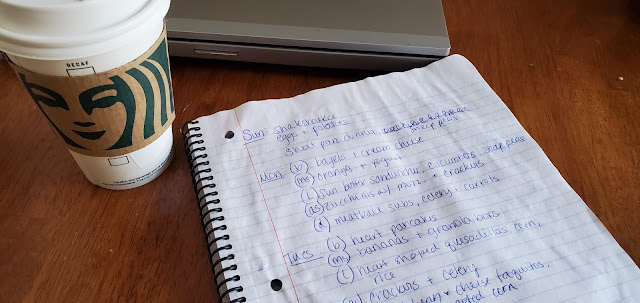 DECAF
Sun: Shakshuka
eggs + potatoes
sheet pan dinner,
meal plan
Mon: (b) bagels + cream cheese
(ms) oranges + yogurt
(L) sun butter sandwiches, cucumbers, snap peas
(as) zucchinis w/ + crackers
(d) meatball subs, celery + carrots
Tues: (b) heart pancakes
(ms) bananas + granola bars
(L) heart shaped quesadillas, corn,
rice
(as) crackers + celery
+ cheese taquitos,
corn